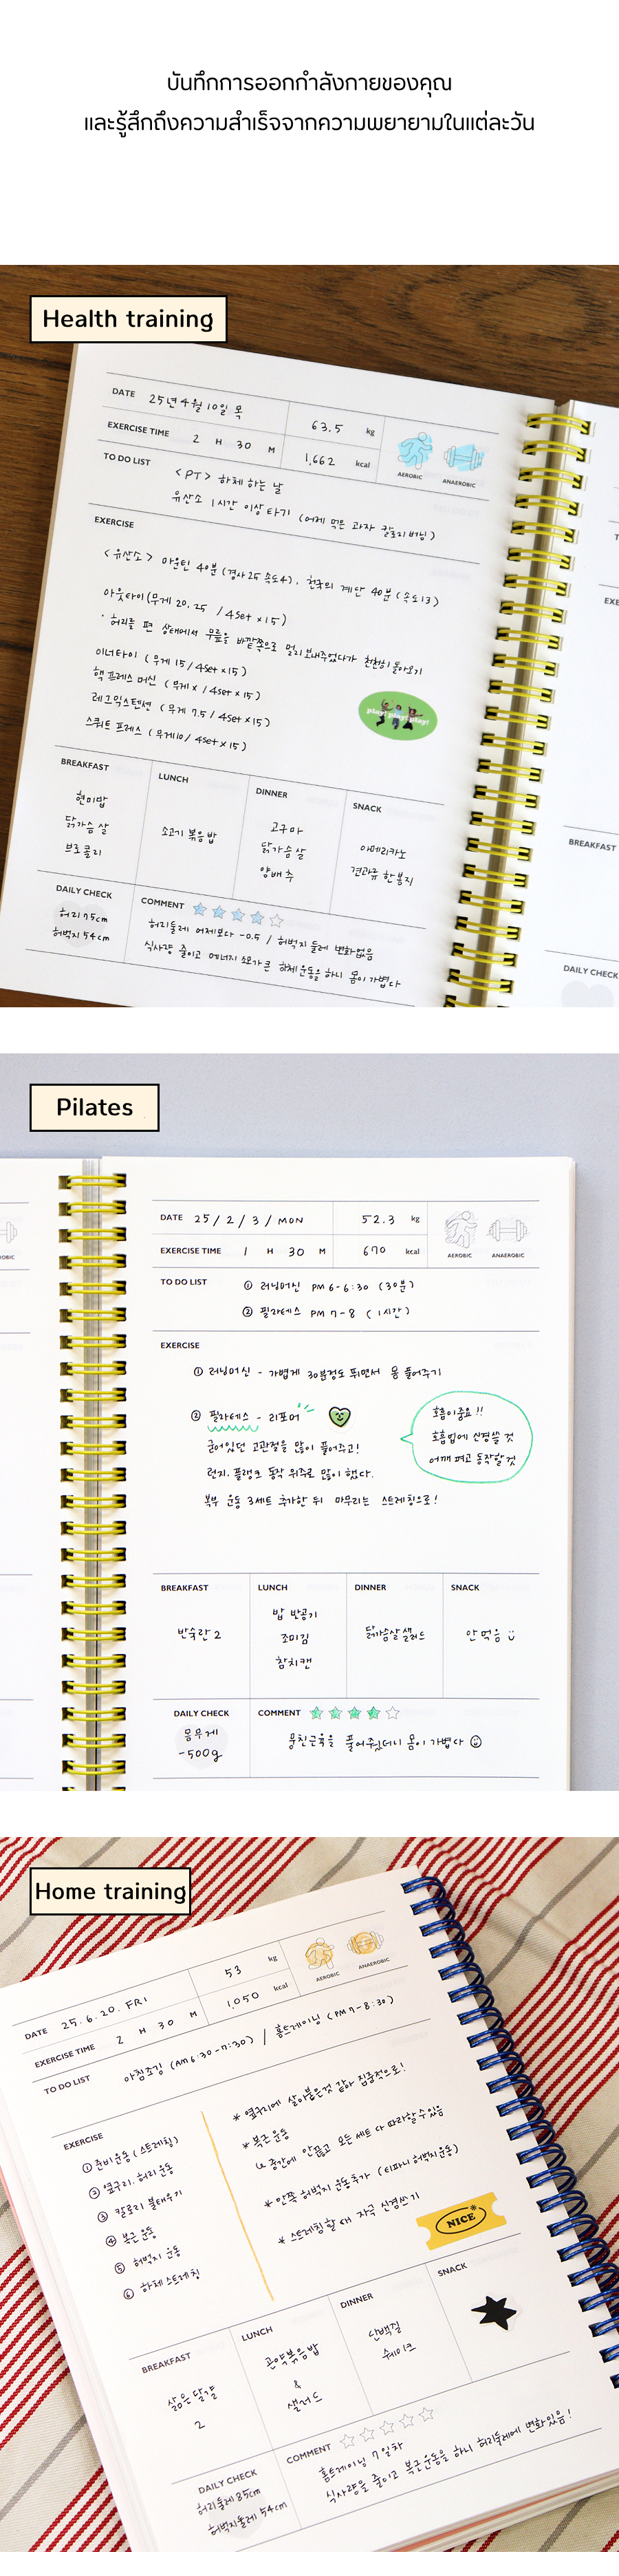 บันทึกการออกกำลังกายของคุณ
และรู้สึกถึงความสำเร็จจากความพยายามในแต่ละวัน
Health training
DATE 25년 4월 10일 목
63.5 kg
EXERCISE TIME 2 H 30 M
1,662 kcal
AEROBIC ANAEROBIC
TO DO LIST
<PT> 하체 하는 날
유산소 1시간 이상 타기 (어제 먹은 과자 칼로리 버닝)
EXERCISE
<유산소> 마운틴 40분 (경사 25 속도 4), 천국의 계단 40분 (속도 13)
아웃타이 (무게 20, 25 / 4set × 15)
· 허리를 편 상태에서 무릎을 바깥쪽으로 멀리 보내주었다가 천천히 돌아오기
이너타이 (무게 15 / 4set × 15)
핵 프레스 머신 (무게 x / 4set × 15)
레그 익스텐션 (무게 7.5 / 4set × 15)
스쿼트 프레스 (무게 10 / 4set × 15)
play! play! play!
BREAKFAST
LUNCH
DINNER
SNACK
현미밥
닭가슴살
브로콜리
소고기 볶음밥
고구마
닭가슴살
양배추
아메리카노
견과류 한 봉지
DAILY CHECK
허리 75cm
허벅지 54cm
COMMENT
허리둘레 어제보다 -0.5 / 허벅지 둘레 변화없음
식사량 줄이고 에너지 소모가 큰 하체운동을 하니 몸이 가볍다
EXE
BREAKFAST
DAILY CHECK
Pilates
OBIC
DATE 25 / 2 / 3 / MON
52.3 kg
EXERCISE TIME 1 H 30 M
670 kcal
AEROBIC ANAEROBIC
TO DO LIST
① 러닝머신 PM 6-6:30 (30분)
② 필라테스 PM 7-8 (1시간)
EXERCISE
① 러닝머신 - 가볍게 30분정도 뛰면서 몸 풀어주기
② 필라테스 - 리포머
굳어있던 고관절을 많이 풀어주고!
런지, 플랭크 동작 위주로 많이 했다.
복부 운동 3세트 추가한 뒤 마무리는 스트레칭으로!
호흡이 중요!!
호흡법에 신경쓸 것
어깨 펴고 동작할 것
BREAKFAST
LUNCH
DINNER
SNACK
반숙란 2
밥 반공기
조미김
참치캔
닭가슴살 샐러드
안 먹음
DAILY CHECK
몸무게
-500g
COMMENT
뭉친근육을 풀어주었더니 몸이 가볍다
Home training
DATE 25. 6. 20. FRI
53 kg
EXERCISE TIME 2 H 30 M
1,050 kcal
AEROBIC ANAEROBIC
TO DO LIST
아침조깅 (AM 6:30-7:30) / 홈트레이닝 (PM 7-8:30)
EXERCISE
① 준비운동 (스트레칭)
② 옆구리, 허리 운동
③ 칼로리 불태우기
④ 복근 운동
⑤ 허벅지 운동
⑥ 하체 스트레칭
* 옆구리에 살 아붙은것 같아 집중적으로!
* 복근 운동
↳ 중간에 안끊고 모든 세트 다 따라할 수 있음
* 안쪽 허벅지 운동 추가 (티파니 허벅지운동)
* 스트레칭 할 때 자극 신경쓰기
NICE
BREAKFAST
LUNCH
DINNER
SNACK
삶은 달걀
2
곤약볶음밥
&
샐러드
단백질
쉐이크
DAILY CHECK
허리둘레 85cm
허벅지둘레 54cm
COMMENT
홈트레이닝 7일차
식사량을 줄이고 복근운동을 하니 허리둘레에 변화있음!